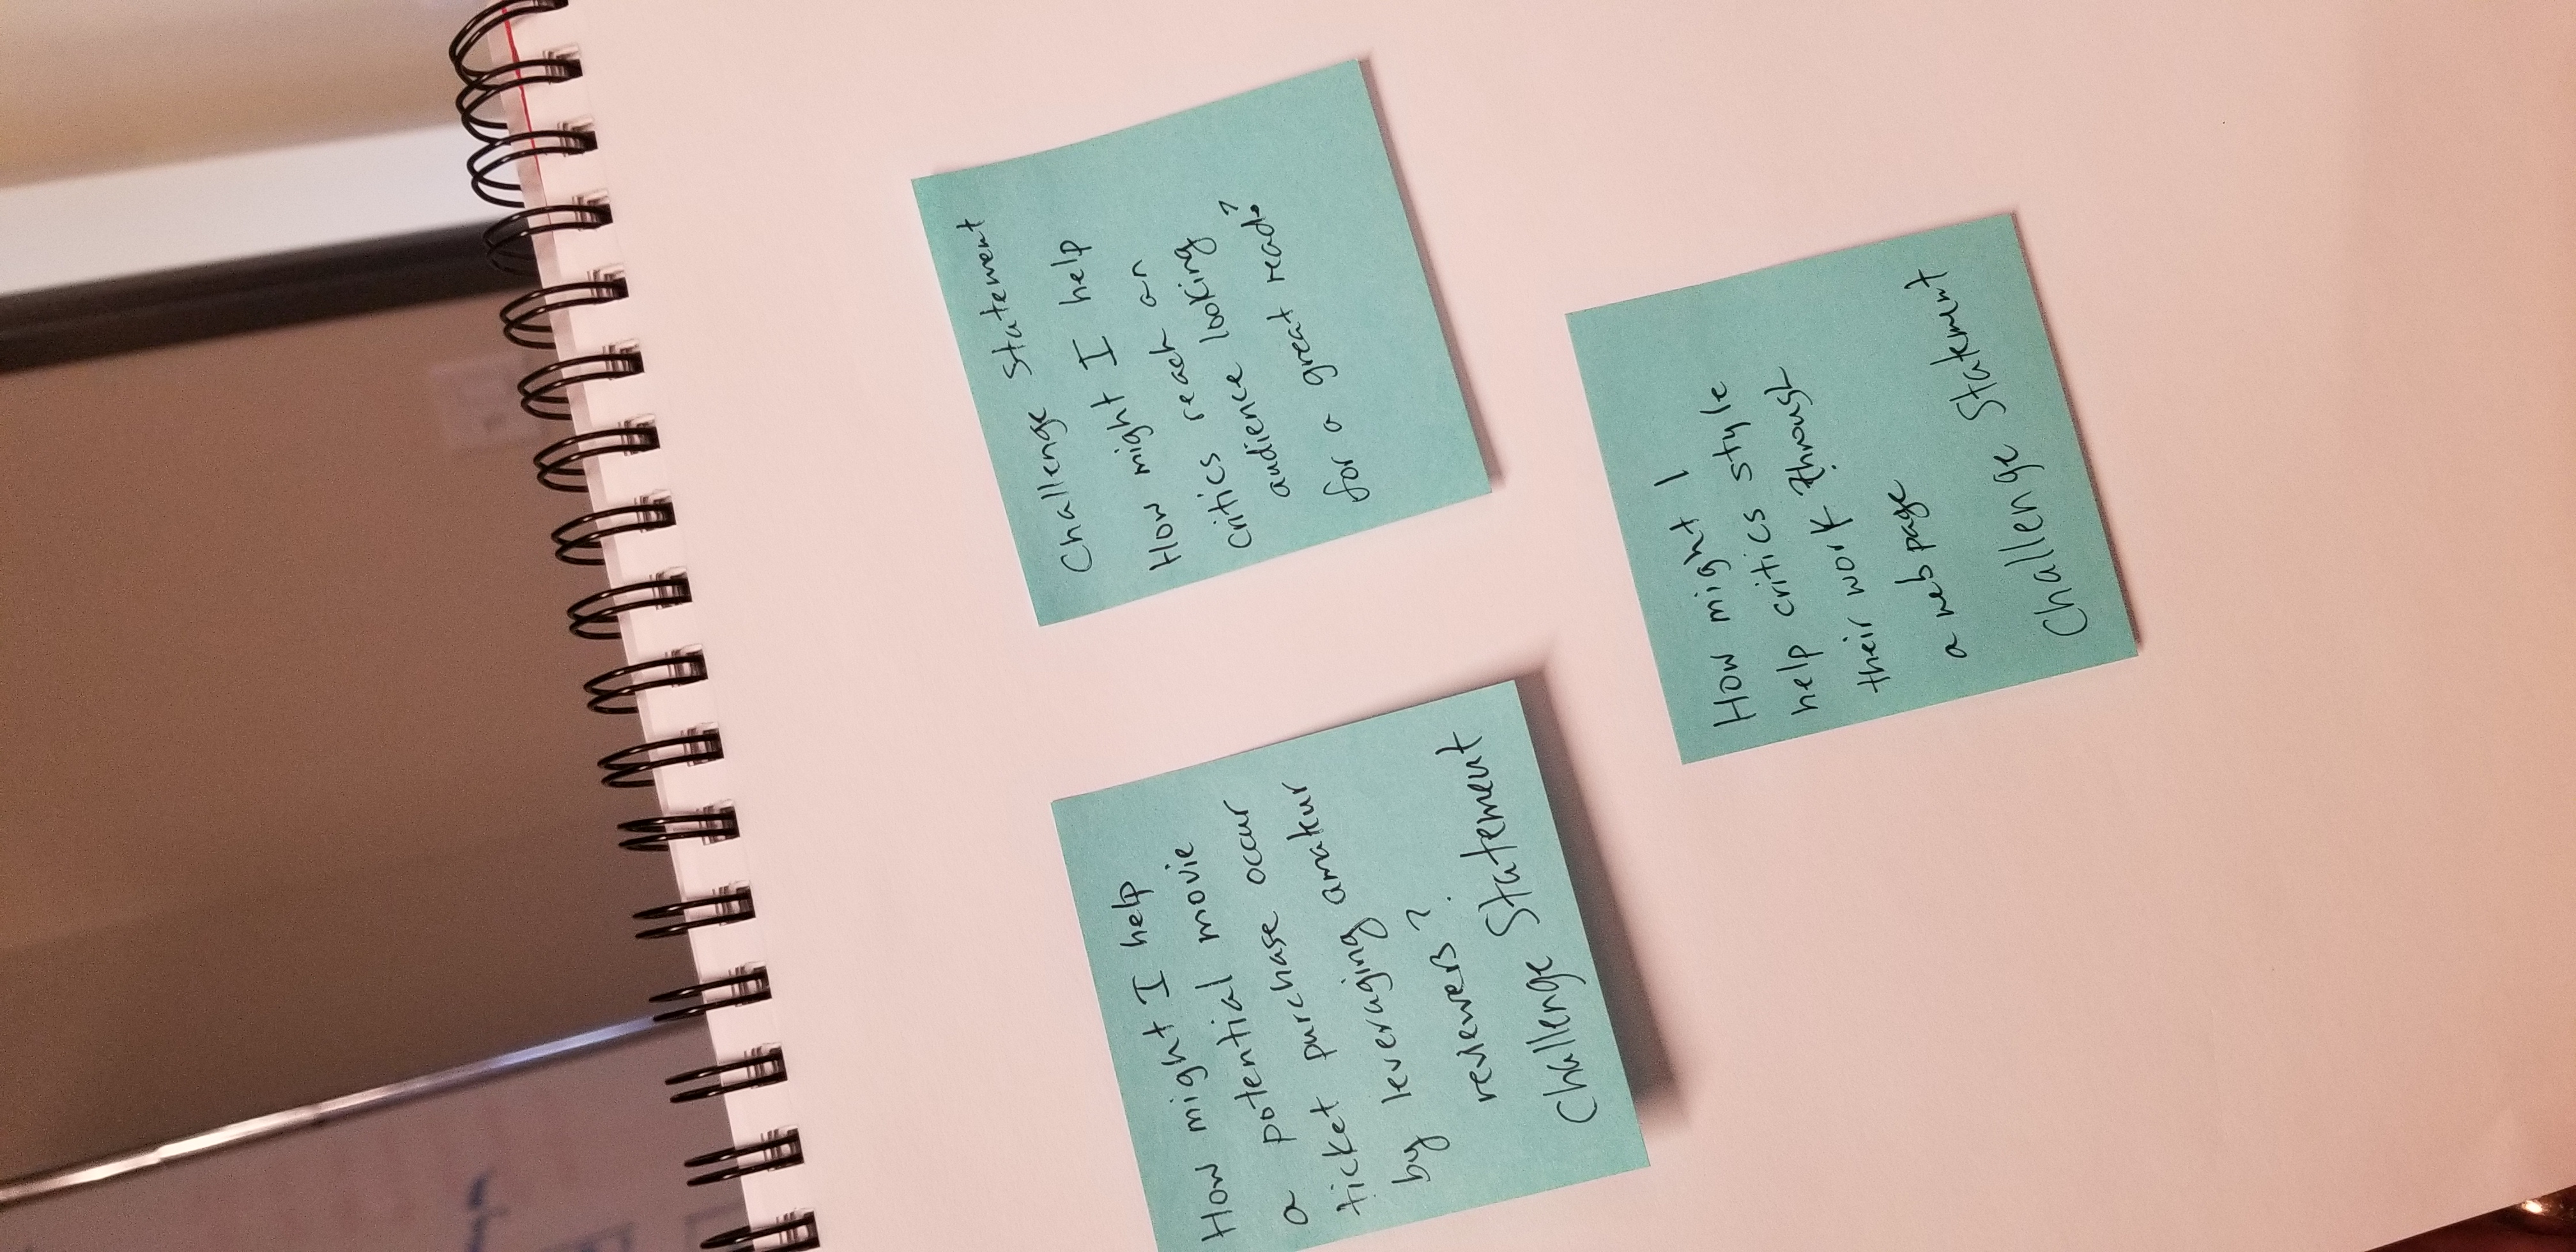 How might I help
a potential movie
ticket purchase occur
by leveraging amateur
reviewers?
Challenge Statement
Challenge Statement
How might I help
critics reach an
audience looking
for a great read?
How might I
help critics style
their work through
a web page
Challenge Statement